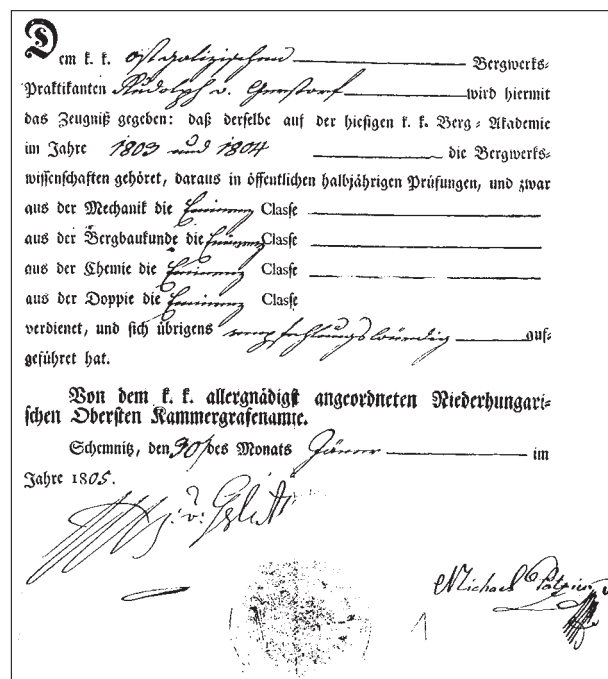 Dem k. k. ostgalizischen Bergwerks-
Praktikanten Rudolph v. Gersdorf wird hiermit
das Zeugniß gegeben: daß derselbe auf der hiesigen k. k. Berg-Akademie
im Jahre 1803 und 1804 die Bergwerks-
wissenschaften gehöret, daraus in öffentlichen halbjährigen Prüfungen, und zwar
aus der Mechanik die Eminenz Classe
aus der Bergbaukunde die Eminenz Classe
aus der Chemie die Eminenz Classe
aus der Doppie die Eminenz Classe
verdienet, und sich übrigens empfehlungswürdig auf-
geführet hat.
Von dem k. k. allergnädigst angeordneten Niederhungari-
schen Obersten Kammergrafenamte.
Schemnitz, den 30 des Monats Jäner im
Jahre 1805.
Michael